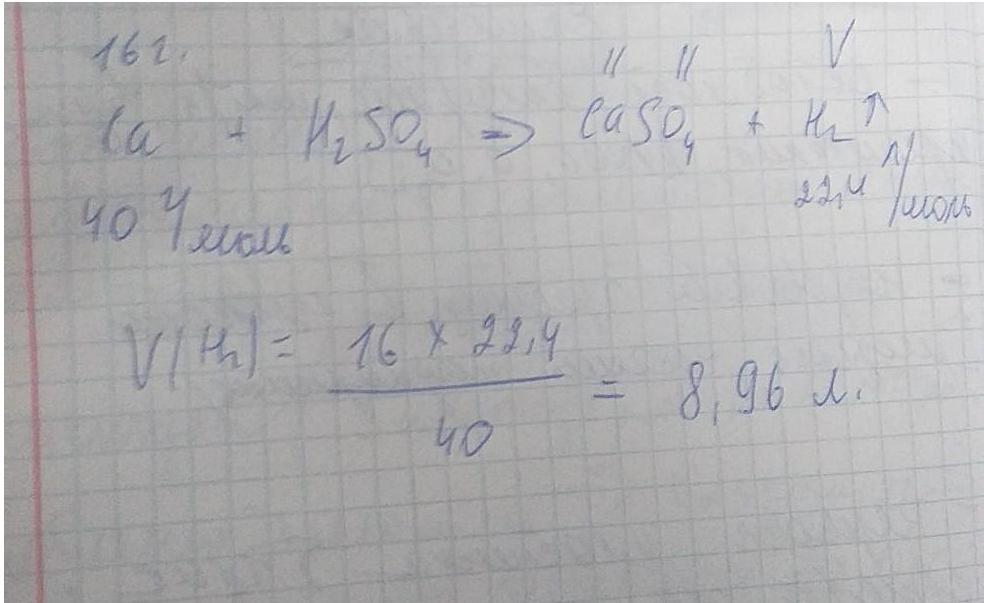 16 г.
II II V
Ca + H₂SO₄ => CaSO₄ + H₂ ↑
40 г/моль 22,4 л/моль
V(H₂) = 16 x 22,4 / 40 = 8,96 л.